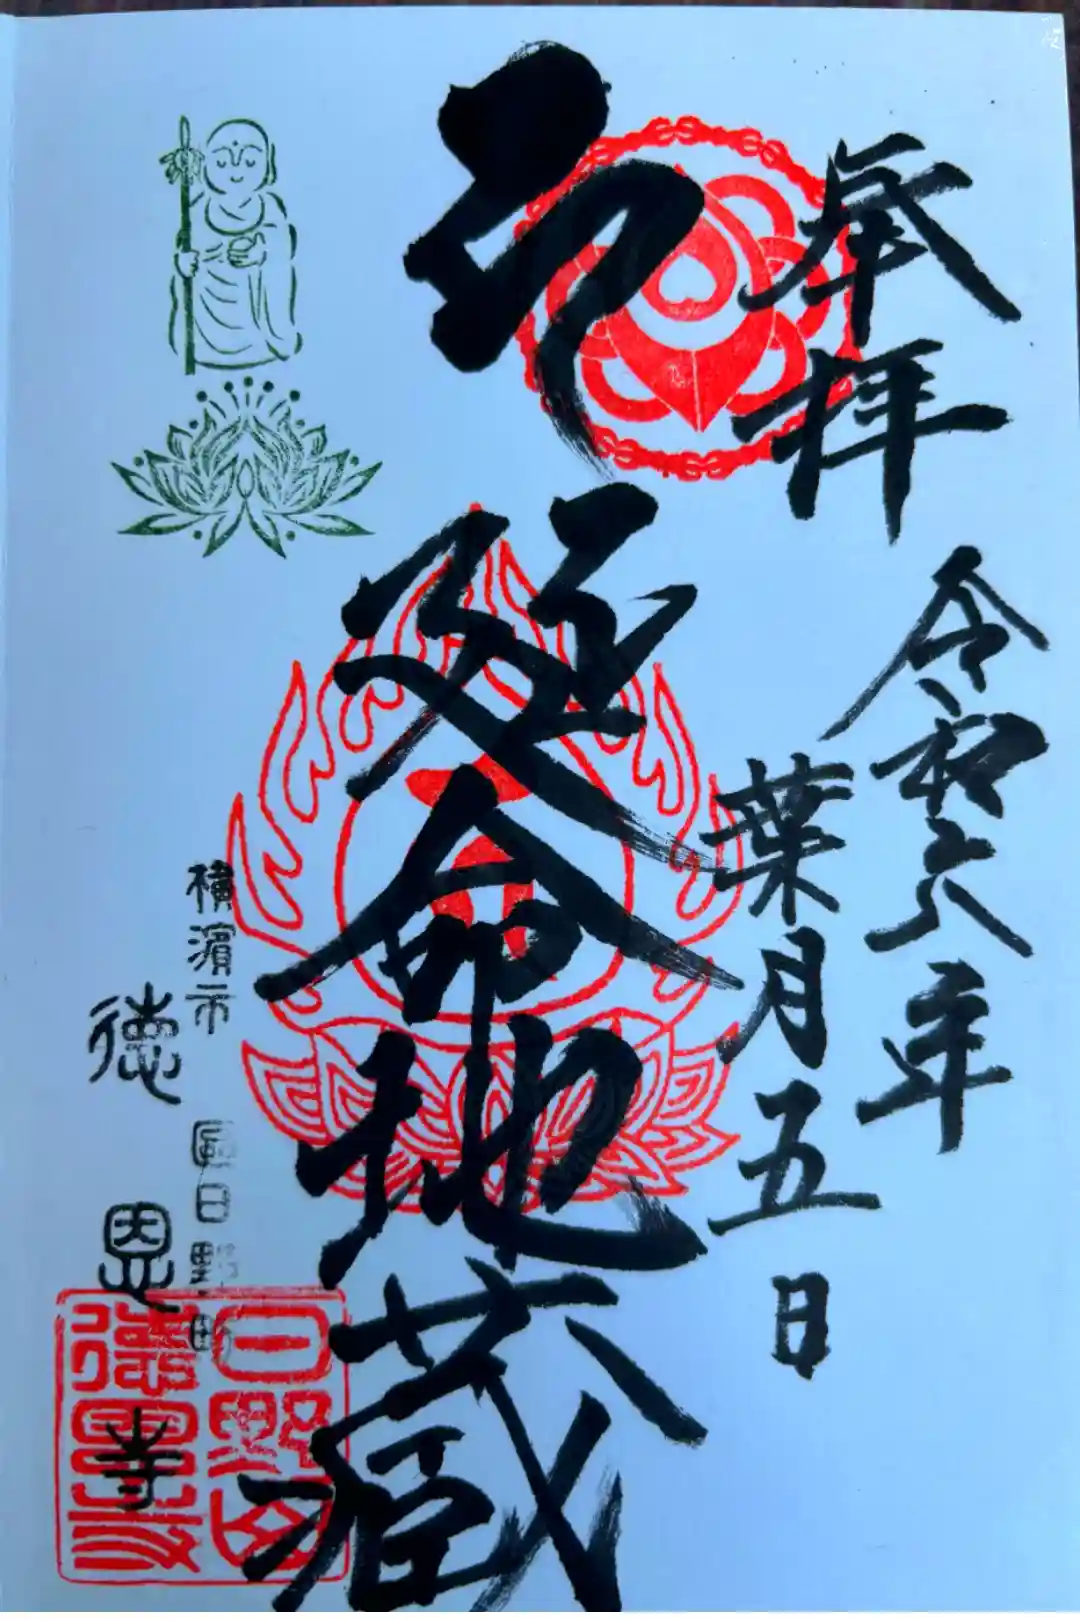 奉拝
令和六年
葉月五日
延命地蔵
横濱市 区日野町
徳恩寺
日野